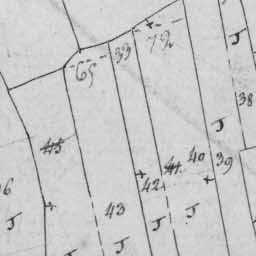 65
33
72
J
38
45
41
40
39
42
43
6
J
J
J
J
J
J